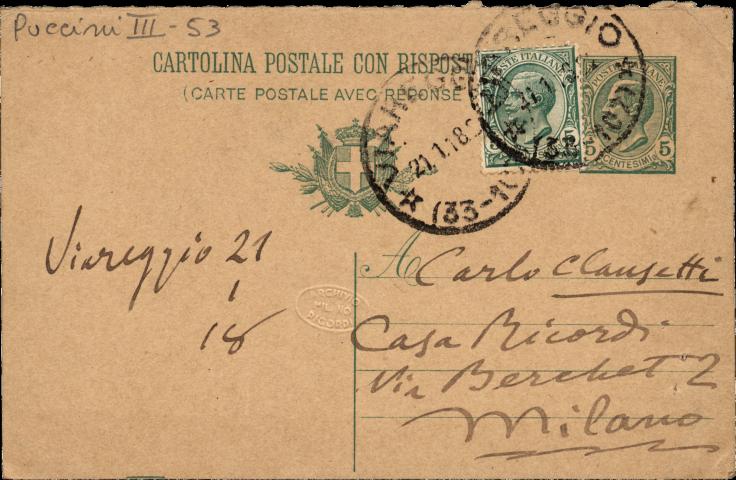 Puccini III - 53
CARTOLINA POSTALE CON RISPOST
(CARTE POSTALE AVEC RÉPONSE
POSTE ITALIANE
5
POSTE ITALIANE
5 5
CENTESIMI
VIAREGGIO
21.1.18
(33-10
VIAREGGIO
Viareggio 21
1
18
ARCHIVIO
MILANO
RICORDI
A Carlo Clausetti
Casa Ricordi
Via Berchet 2
Milano